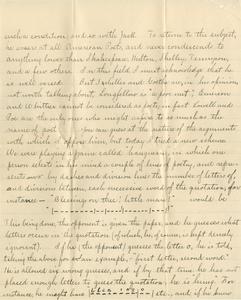 such a condition, and so with Jack. To return to the subject,
he swears at all American Poets, and never condescends to
anything lower than Shakespeare, Milton, Shelley, Tennyson,
and a few others. In this field I must acknowledge that he
is well versed. But Schiller and Goethe are, in his opinion
not worth talking about, Longfellow is "a poor nut", Emerson
and Whittier cannot be considered as poets, in fact Lowell and
Poe are the only ones who might aspire to so much as the
name of poet. You can guess at the nature of the arguments
with which I oppose him, but today I tried a new scheme.
We were playing a game called "Hangman", in which one
person selects in his mind a couple of lines of poetry, and repre-
sents by dashes and division lines the number of letters of,
and division between, each successive word of the quotation; for
instance — Blessings on thee! little man! would be
This being done, the opponent is given the paper, and he guesses what
letter occurs in the quotation (of which, he, of course, is kept densely
ignorant). If he, the opponent, guesses the letter o, he is told,
taking the above for an example, "first letter, second word."
He is allowed six wrong guesses, and if by that time he has not
placed enough letters to guess the quotation, he is hung. For
instance, he might have etc., and if he knew